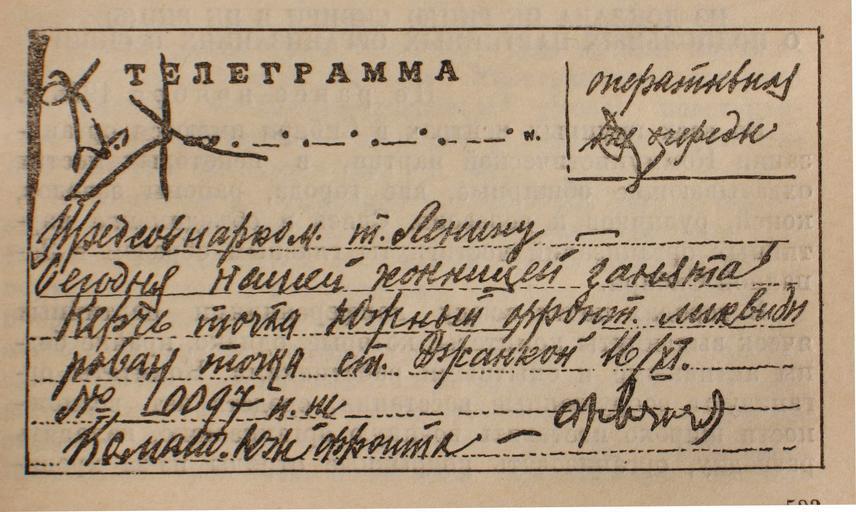 ТЕЛЕГРАММА
оперативная
очереди
Предсовнарком. т. Ленину —
Сегодня нашей конницей занята
Керчь точка Южный фронт ликвиди
рован точка ст. Джанкой 16/XI.
№ 0097 п. ш
Команд. Южфронта —